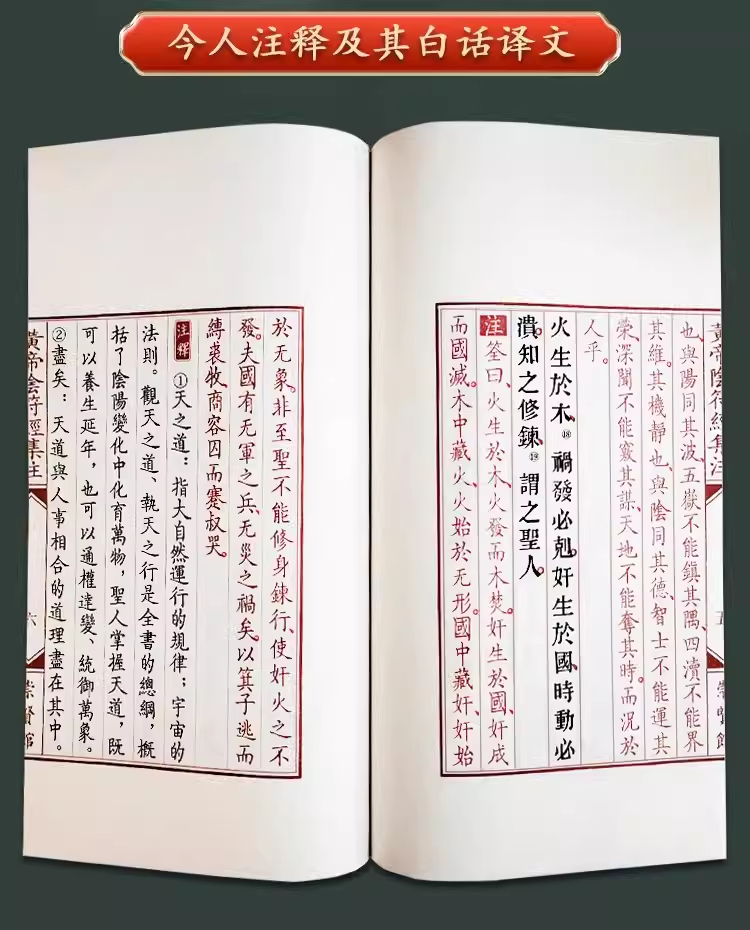 今人注释及其白话译文
黃帝陰符經集注
五
崇賢館
也、與陽同其波、五嶽不能鎮其隅、四瀆不能界
其維。其機靜也、與陰同其德、智士不能運其
榮、深聞不能窺其謀、天地不能奪其時。而況於
人乎。
火生於木⑱禍發必剋。奸生於國、時動必
潰。知之修鍊⑲謂之聖人。
注 筌曰、火生於木、火發而木焚。奸生於國、奸成
而國滅。木中藏火、火始於无形。國中藏奸、奸始
於无象。非至聖不能修身鍊行、使奸火之不
發。夫國有无軍之兵、无災之禍矣。以箕子逃而
縛裘牧、商容囚而蹇叔哭。
注釋 ①天之道：指大自然運行的規律；宇宙的
法則。觀天之道、執天之行是全書的總綱，概
括了陰陽變化中化育萬物，聖人掌握天道，既
可以養生延年，也可以通權達變、統御萬象。
②盡矣：天道與人事相合的道理盡在其中。
黃帝陰符經集注
六
崇賢館